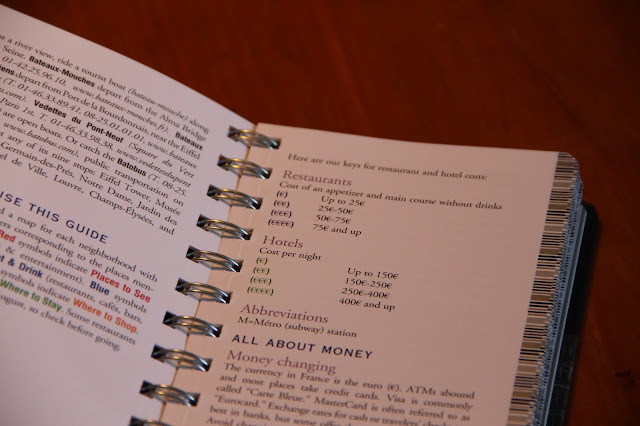 or a river view, ride a tourist boat (bateau-mouche) along
Seine. Bateaux-Mouches depart from the Alma Bridge
01-42.25.96.10, www.bateaux-mouches.fr). Bateaux
depart from Port de la Bourdonnais, near the Eiffel
(T. 01-46.33.89.41, 08-25.01.01.01, www.bateaux
.com). Vedettes du Pont-Neuf (Square du Vert
Paris 1st, T. 01-46.33.98.38, www.vedettesdupont
are open boats. Or catch the Batobus (T. 08-25.
www.batobus.com), public transportation on
any of its nine stops: Eiffel Tower, Musée
Germain-des-Prés, Notre Dame, Jardin des
de Ville, Louvre, Champs-Élysées, and
USE THIS GUIDE
d a map for each neighborhood with
ers corresponding to the places men-
Red symbols indicate Places to See
& entertainment). Blue symbols
t & Drink (restaurants, cafés, bars,
symbols indicate Where to Shop.
Where to Stay. Some restaurants
ugust, so check before going.
Here are our keys for restaurant and hotel costs:
Restaurants
Cost of an appetizer and main course without drinks
(€) Up to 25€
(€€) 25€-50€
(€€€) 50€-75€
(€€€€) 75€ and up
Hotels
Cost per night
(€) Up to 150€
(€€) 150€-250€
(€€€) 250€-400€
(€€€€) 400€ and up
Abbreviations
M=Métro (subway) station
ALL ABOUT MONEY
Money changing
The currency in France is the euro (€). ATMs abound
and most places take credit cards. Visa is commonly
called "Carte Bleue," MasterCard is often referred to as
"Eurocard." Exchange rates for cash or travelers'
best in banks, but some
Avoid